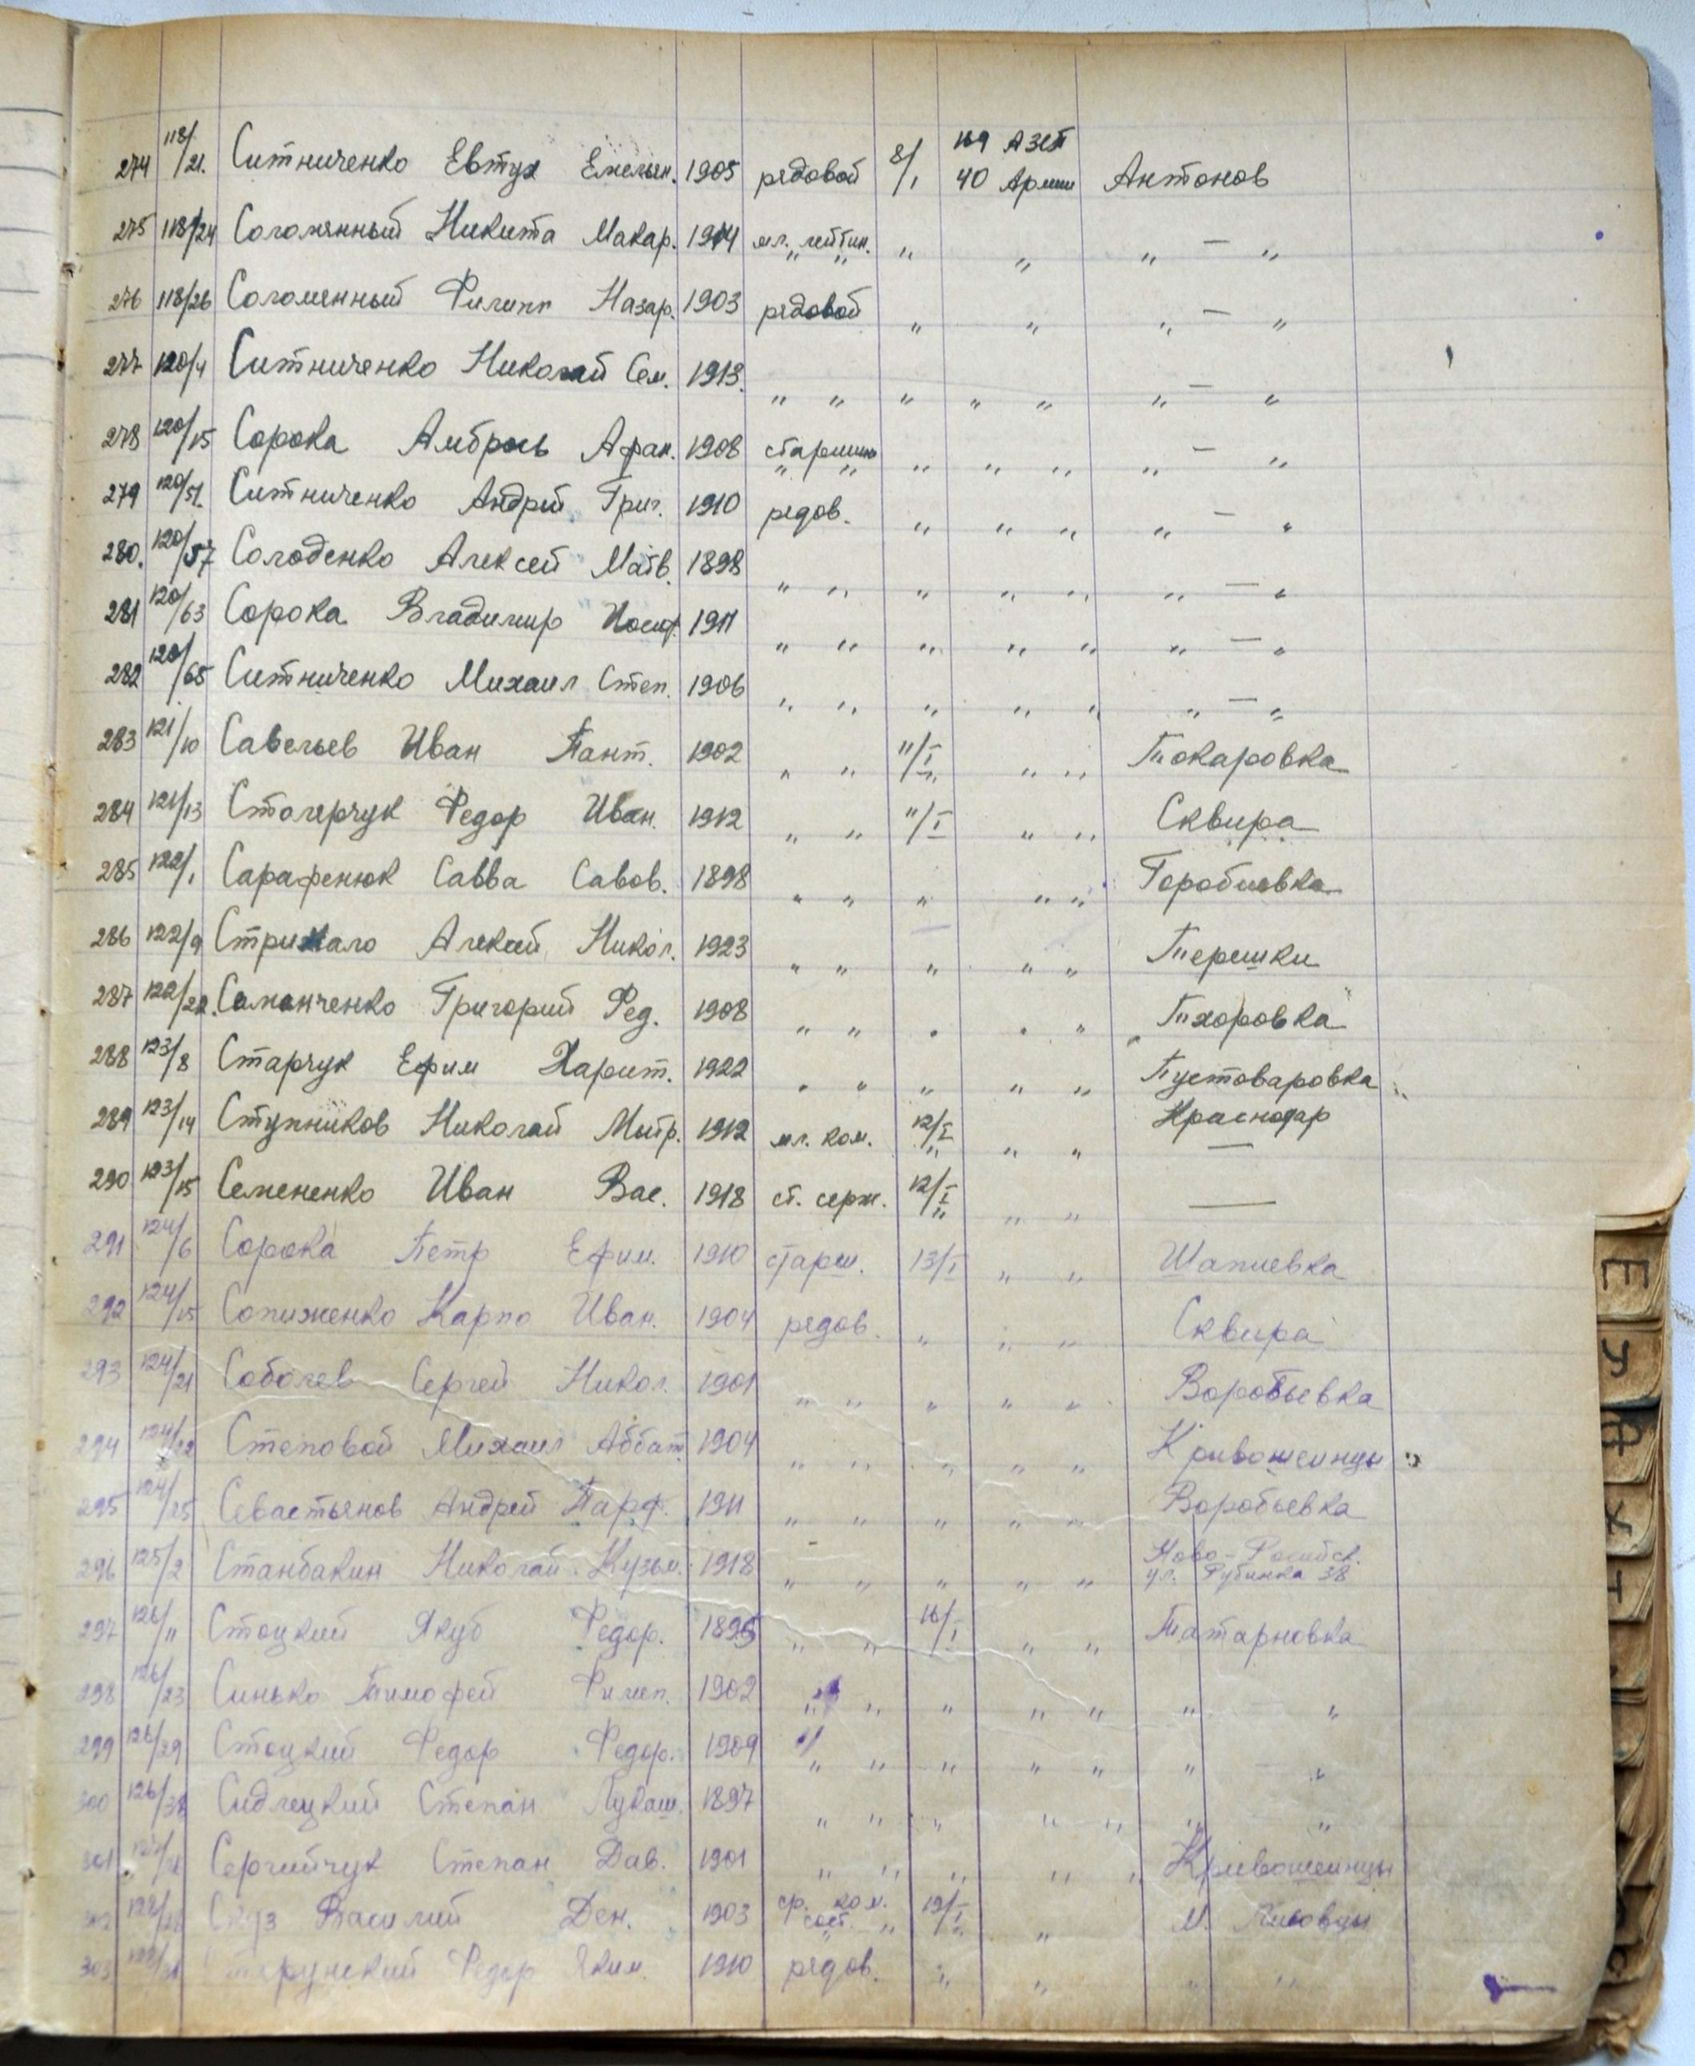 274 118/21. Ситниченко Евтух Емельян. 1905 рядовой 8/I 169 АЗСП 40 Армии Антонов
275 118/24 Соломянный Никита Макар. 1914 мл. лейтин. „ „ „ — „
276 118/26 Соломенный Филипп Назар. 1903 рядовой „ „ „ — „
277 120/4 Ситниченко Николай Сем. 1913. „ „ „ „ „ „ — „
278 120/15 Сорока Амбрось Афан. 1908 старшина „ „ „ „ — „
279 120/51. Ситниченко Андрей Григ. 1910 рядов. „ „ „ „ — „
280. 120/57 Солоденко Алексей Матв. 1898 „ „ „ „ „ „ — „
281 120/63 Сорока Владимир Иосиф. 1911 „ „ „ „ „ „ — „
282 120/65 Ситниченко Михаил Степ. 1906 „ „ „ „ „ „ — „
283 121/10 Савельев Иван Пант. 1902 „ „ 11/I „ „ Токаровка
284 121/13 Столярчук Федор Иван. 1912 „ „ 11/I „ „ Сквира
285 122/1 Сарафенюк Савва Савов. 1898 „ „ „ „ „ Горобиевка
286 122/9 Стрихало Алексей Никол. 1923 „ „ „ „ „ Терешки
287 122/22. Саманченко Григорий Фед. 1908 „ „ „ „ „ Тхоровка
288 123/8 Старчук Ефим Харит. 1922 „ „ „ „ „ Пустоваровка
289 123/14 Ступников Николай Митр. 1912 мл. ком. 12/I „ „ Краснодар —
290 123/15 Семененко Иван Вас. 1918 ст. серж. 12/I „ „ —
291 124/6 Сорока Петр Ефим. 1910 старш. 13/I „ „ Шапиевка
292 124/15 Сопиженко Карпо Иван. 1904 рядов. „ „ „ Сквира
293 124/21 Соболев Сергей Никол. 1901 „ „ „ „ „ Воробьевка
294 124/22 Степовой Михаил 1904 „ „ „ „ „ Кривошеинцы
295 124/25 Севастьянов Андрей Парф. 1911 „ „ „ „ „ Воробьевка
296 125/2 Станбакин Николай Кузьм. 1918 „ „ „ „ „ Ново-Росийск. ул. Рубинка 38
297 126/11 Стоцкий Якуб Федор. 1895 „ „ 16/I „ „ Татарновка
298 126/23 Синько Тимофей Филип. 1902 „ „ „ „ „ „ „
299 126/29 Стоцкий Федор Федор. 1909 „ „ „ „ „ „ „
300 Сидлецкий Степан Лукаш. 1897 „ „ „ „ „ „ „
301 Сергийчук Степан Дав. 1901 „ „ „ „ „ Кривошеинцы
302 Василий Ден. 1903 ср. ком. сост. 19/I „ М.
303 Федор Яким. 1910 рядов. „ „ „ „
Е